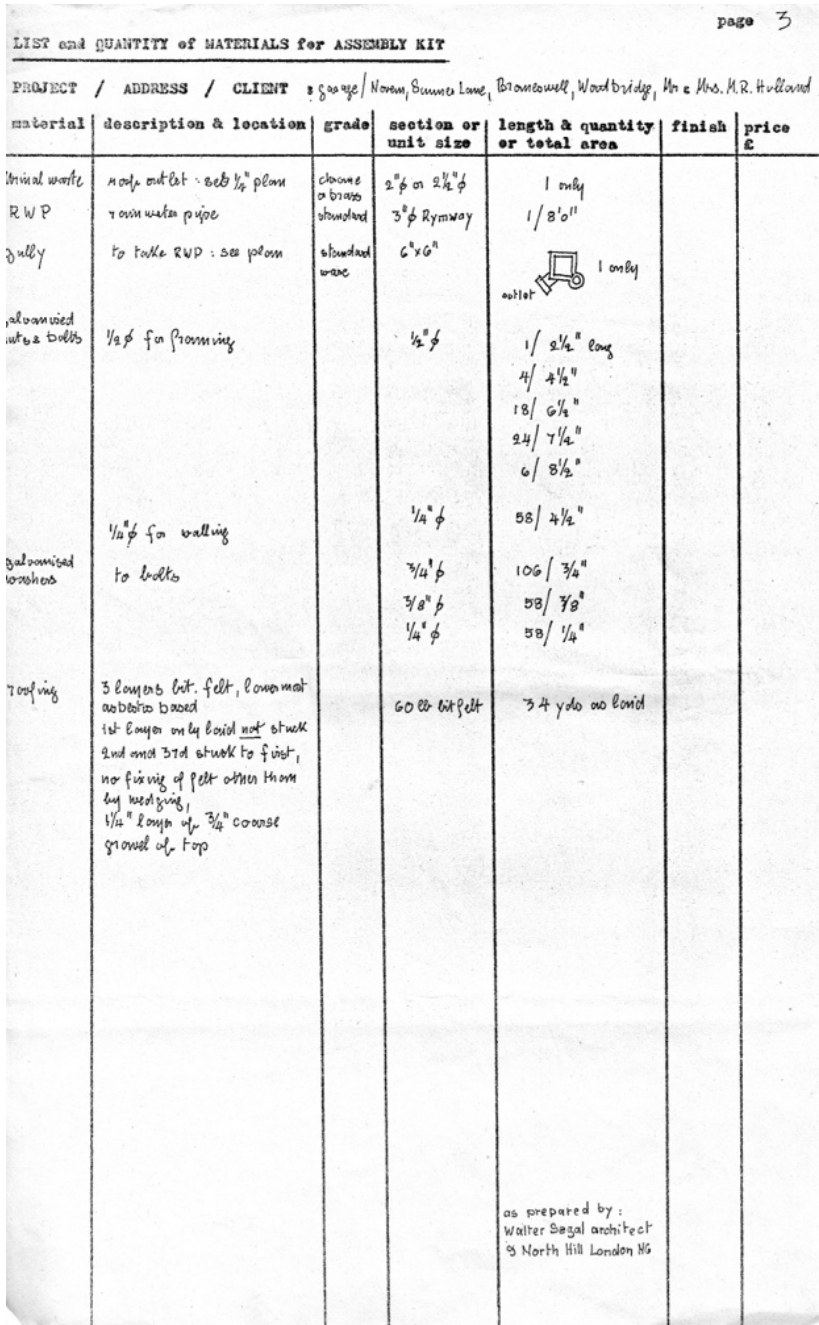 page 3
LIST and QUANTITY of MATERIALS for ASSEMBLY KIT
PROJECT / ADDRESS / CLIENT : garage / Novem, Summer Lane, Bromeswell, Woodbridge, Mr & Mrs. M.R. Holland
material description & location grade section or unit size length & quantity or total area finish price £
urinal waste roof outlet : see ½" plan chrome or brass 2"ϕ or 2½"ϕ 1 only
RWP rainwater pipe standard 3"ϕ Rymway 1/ 8'0"
gully to take RWP : see plan standard ware 6"x6" 1 only
outlet
galvanised
nuts & bolts ½ϕ for framing ½"ϕ 1/ 2½" long
4/ 4½"
18/ 6½"
24/ 7½"
6/ 8½"
¼"ϕ for walling ¼"ϕ 58/ 4½"
galvanised
washers to bolts ¾"ϕ 106/ ¾"
3/8"ϕ 58/ 3/8"
¼"ϕ 58/ ¼"
roofing 3 layers bit. felt, lowermost
asbestos based 60 lb bit felt 34 yds as laid
1st layer only laid not stuck
2nd and 3rd stuck to first,
no fixing of felt other than
by wedging,
1¼" layer of ¾" coarse
gravel of top
as prepared by :
Walter Segal architect
9 North Hill London N6